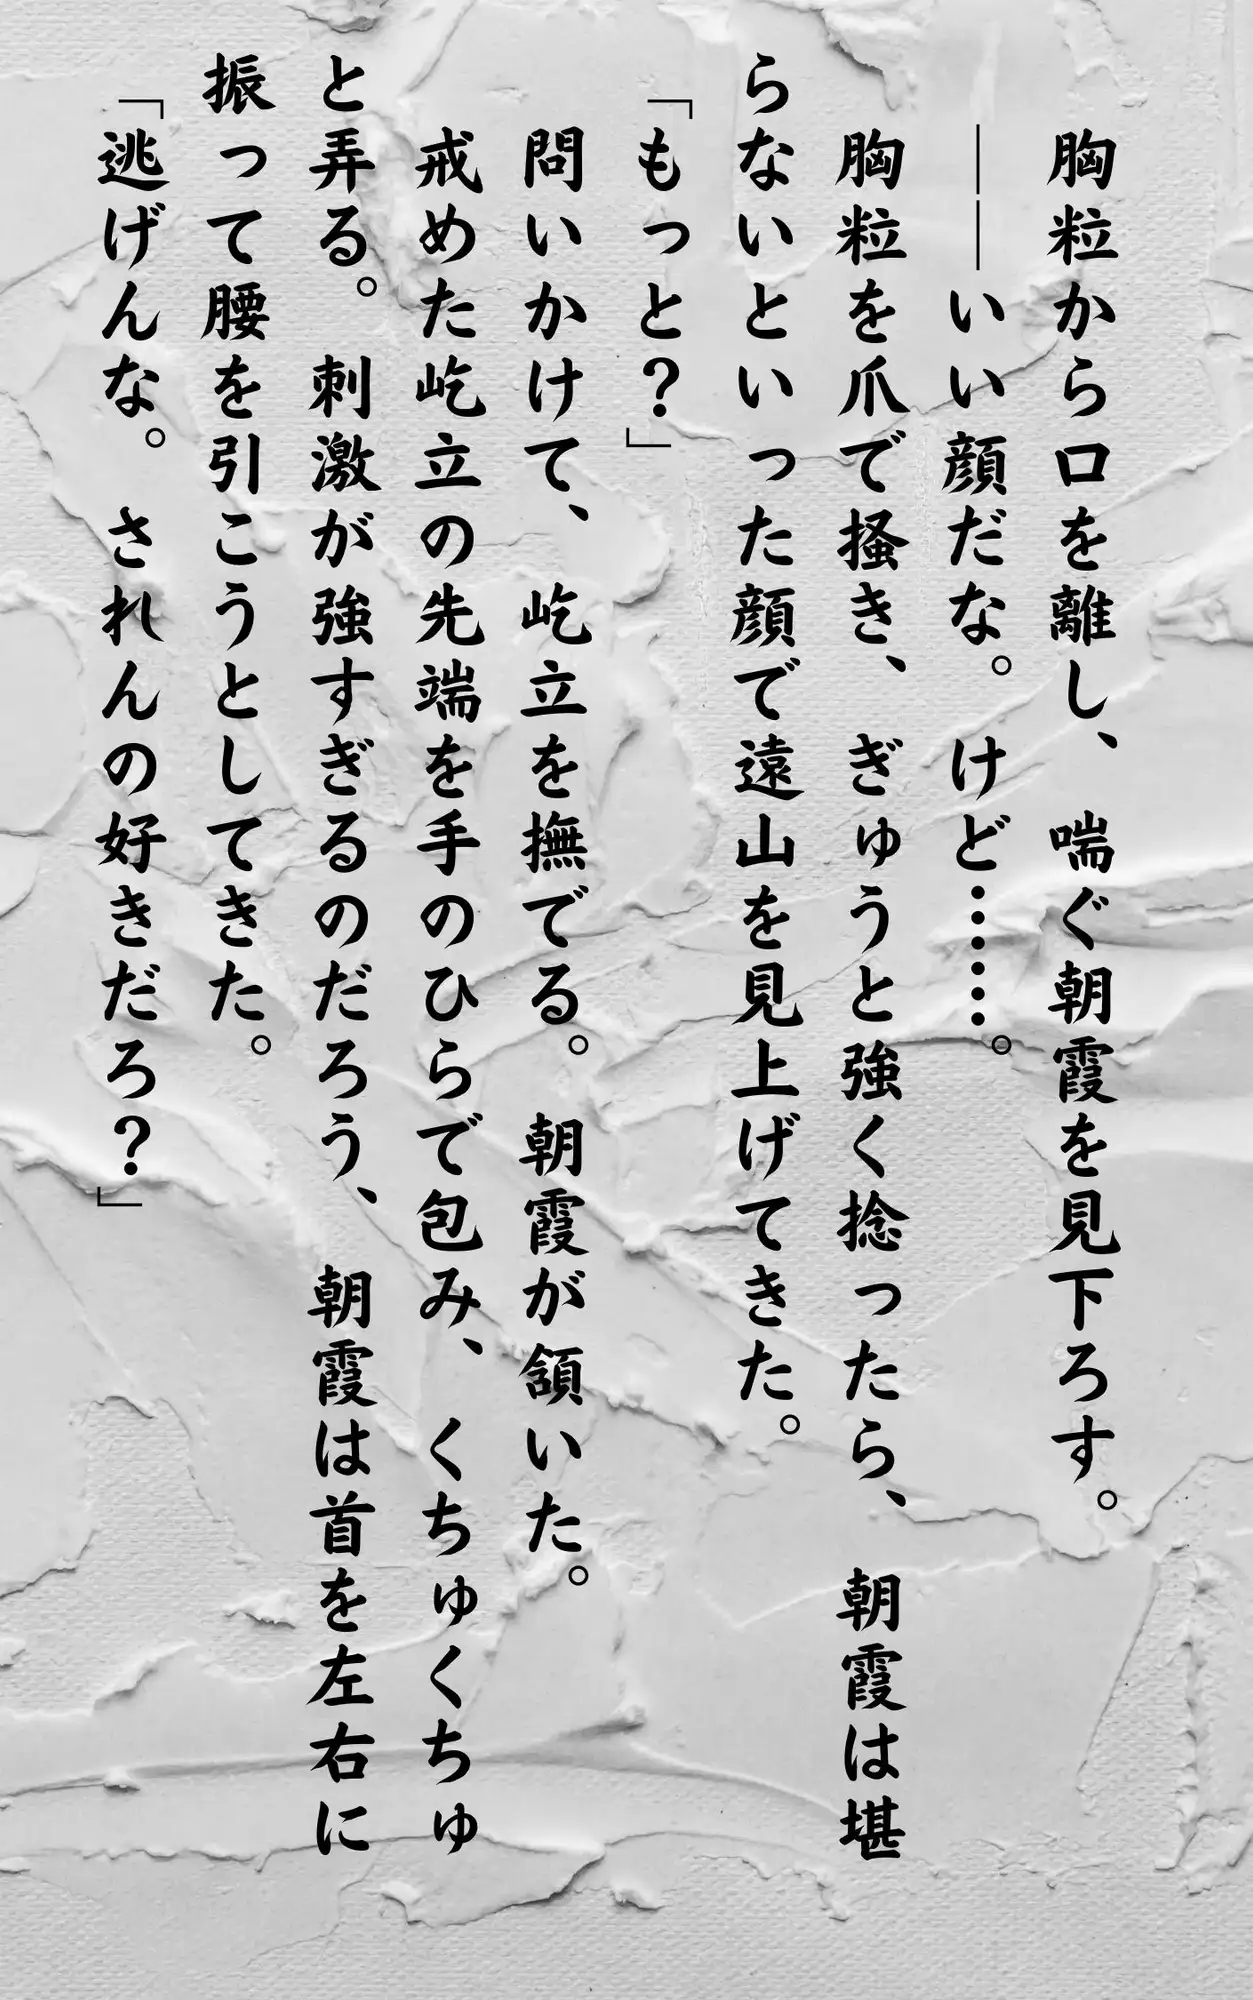 胸粒から口を離し、喘ぐ朝霞を見下ろす。
――いい顔だな。けど……。
胸粒を爪で掻き、ぎゅうと強く捻ったら、朝霞は堪
らないといった顔で遠山を見上げてきた。
「もっと？」
問いかけて、屹立を撫でる。朝霞が頷いた。
戒めた屹立の先端を手のひらで包み、くちゅくちゅ
と弄る。刺激が強すぎるのだろう、朝霞は首を左右に
振って腰を引こうとしてきた。
「逃げんな。されんの好きだろ？」